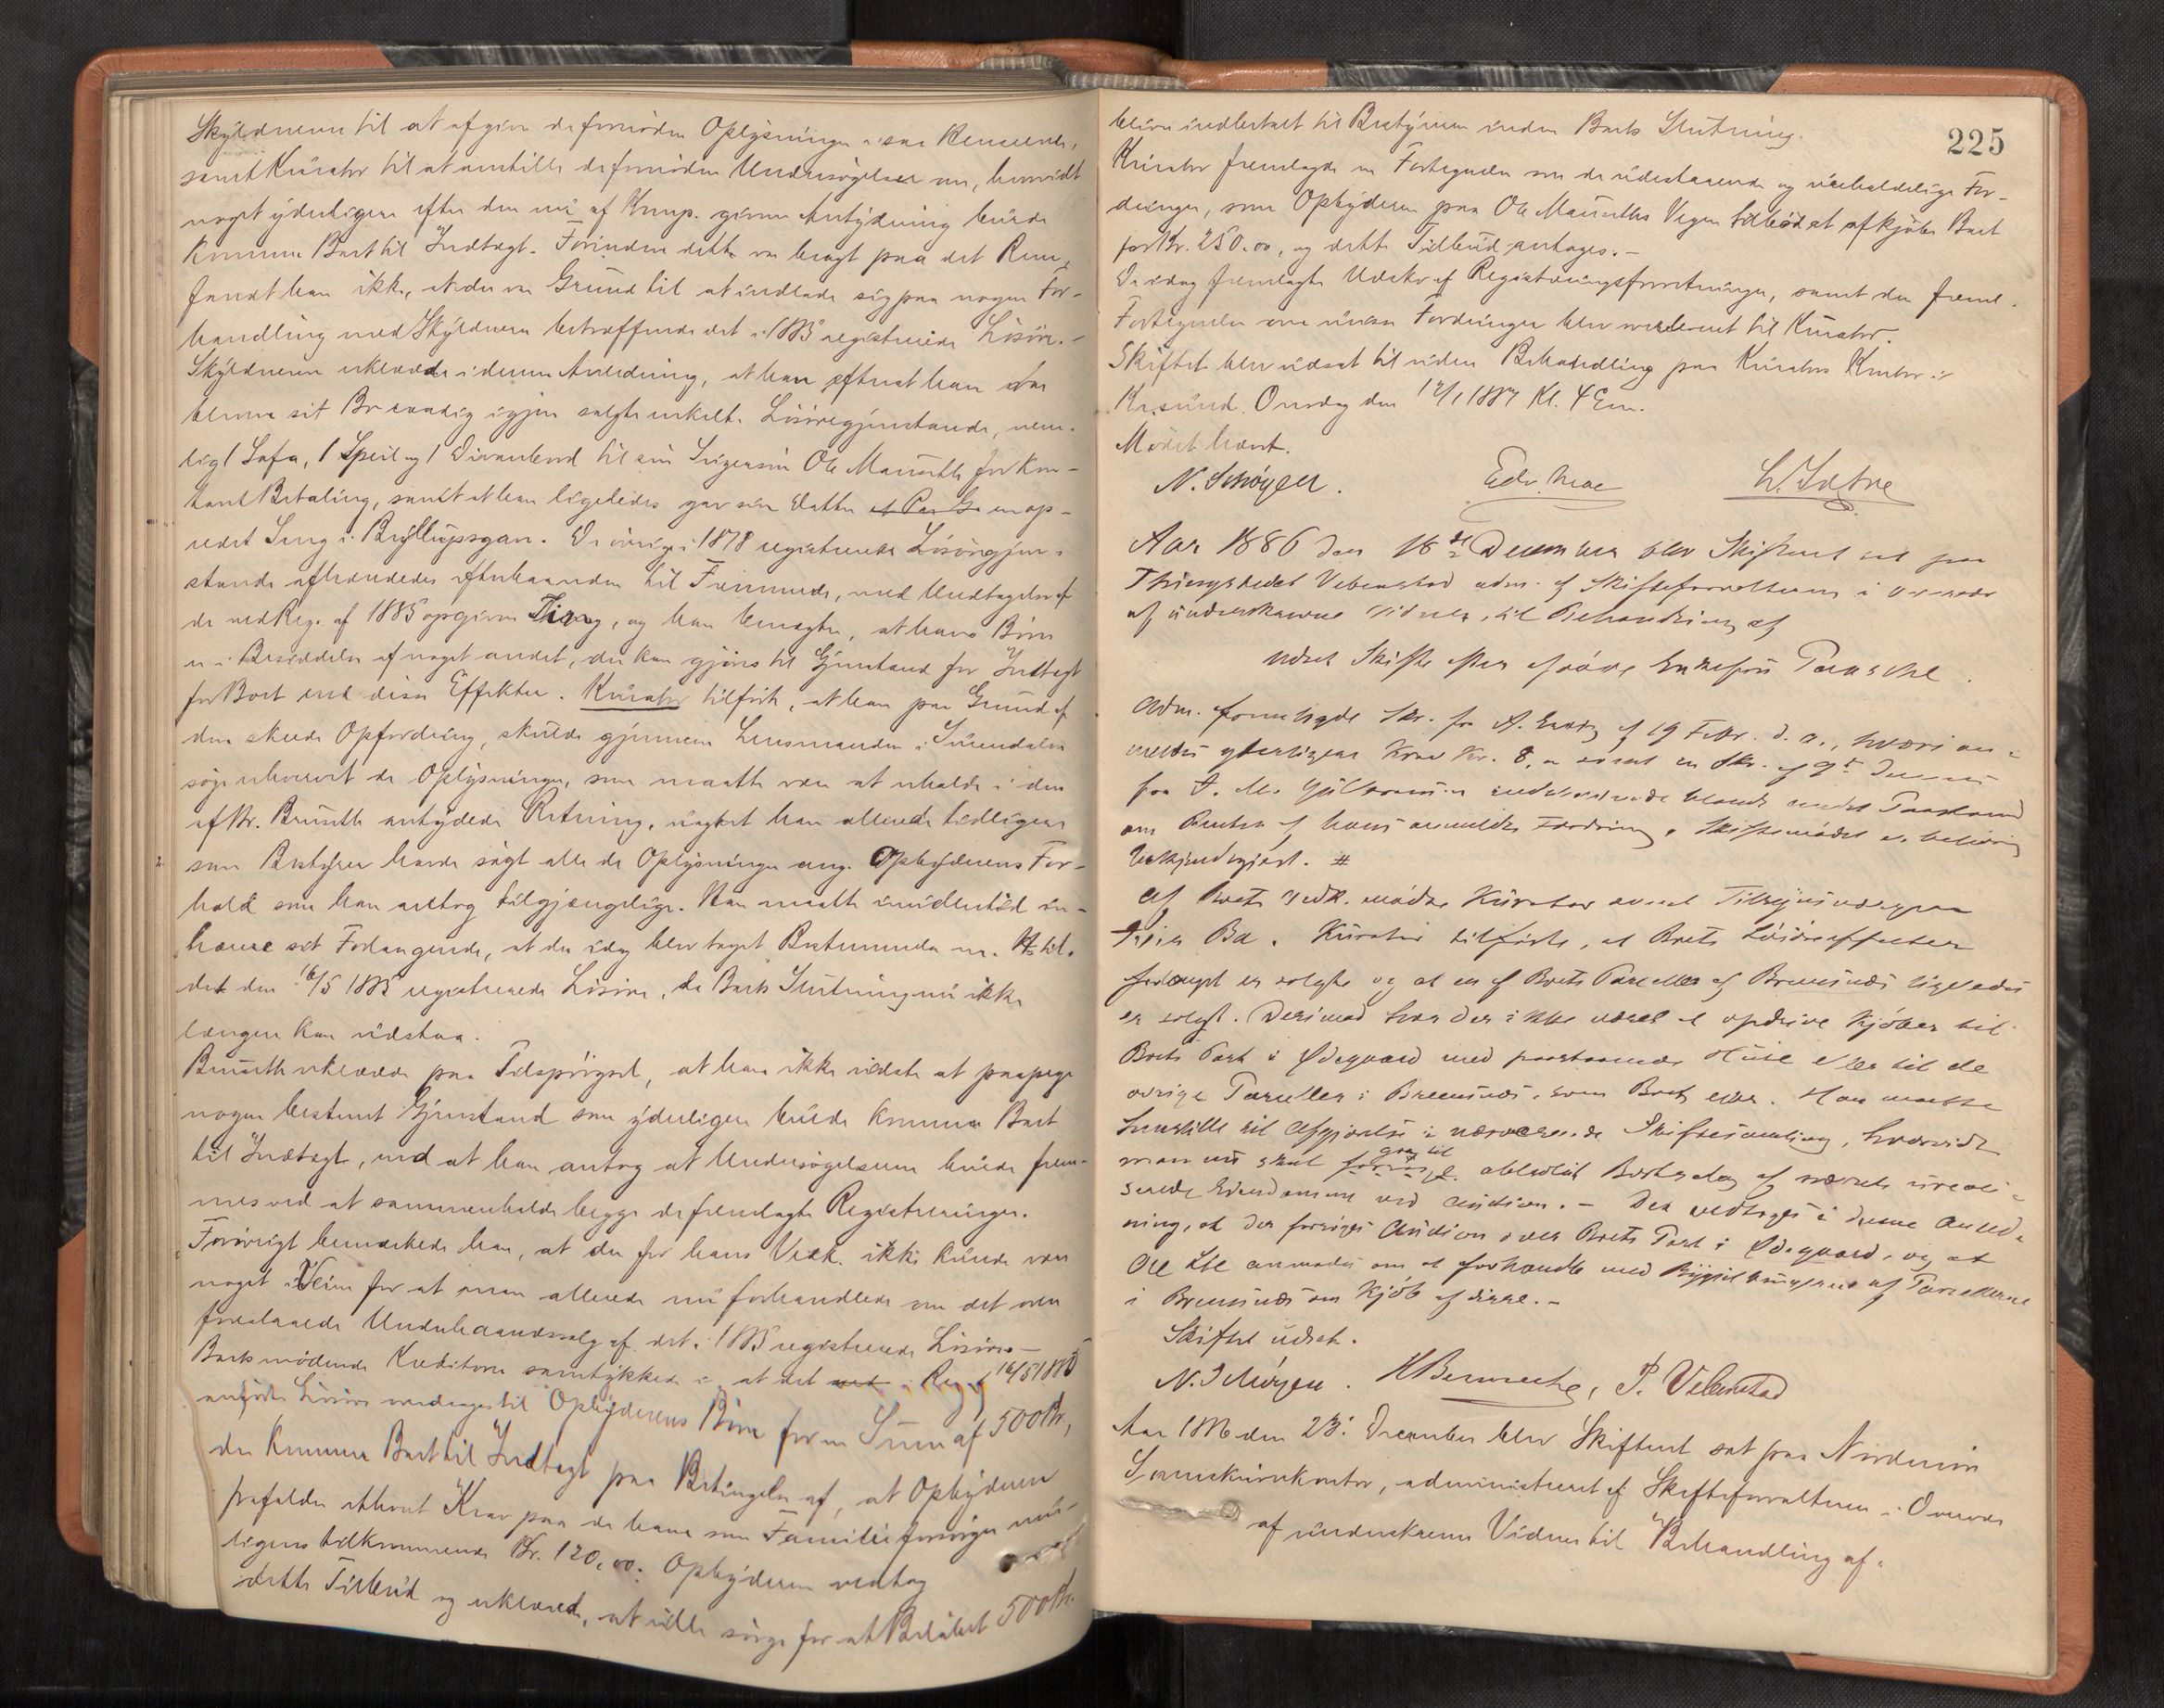 Skyldneren til at afgive de fornødne Oplysninger i saa Henseende,
samt Kurator til at anstille de fornødne Undersøgelser om, hvorvidt
noget yderligere efter den nu af Komp. givne Antydning burde
komme Boet til Indtægt. Forinden dette var bragt paa det Rene,
fandt han ikke, at der var Grund til at indlade sig paa nogen For-
handling med Skyldneren betræffende det i 1885 registrerede Løsøre.-
Skyldneren erklærede i denne Anledning, at han efterat han
sit Bo raadig igjen solgte enkelte Løsøregjenstande, nem-
lig 1 Sofa, 1 Speil og 1 Divanbord til sin Svigersøn Ole Mauseth for Kon-
tant Betaling, samt at han ligeledes gav sin Datter et Par en op-
redet Seng i Bryllupsgave. De øvrige i 1878 registrerede Løsøregjen-
stande afhændedes efterhaanden til Fremmede, med Undtagelse af
de ved Reg. af 1885 opgivne Ting, og han benægter, at hans Børn
er i Besiddelse af noget andet, der kan gjøres til Gjenstand for Indtægt
for Boet end disse Effekter. Kurator tilførte, at han paa Grund af
den skeede Opfordring, skulde gjennem Lensmanden i Surendalen
søge erhvervet de Oplysninger, som maatte være at erholde i den
af Hr. Bruseth antydede Retning, uagtet han allerede tidligere
som Bestyrer havde søgt alle de Oplysninger ang. Opbyderens For-
hold som han antog tilgjængelige. Han maatte imidlertid in-
hærere sit Forlangende, at der idag blev taget Bestemmelse m. H. til
det den 16/5 1885 registrerede Løsøre, da Boets Slutning nu ikke
længere kan udstaa.
Bruseth erklærede paa Tilspørgsel, at han ikke vidste at paapege
nogen bestemt Gjenstand som yderligere burde komme Boet
til Indtægt, med at han antog at Undersøgelserne burde frem-
mes ved at sammenholde begge de fremlagte Registreringer.
Forøvrigt bemærkede han, at der for hans Vedk. ikke kunde være
noget i Veien for at man allerede nu forhandlede om det oven
foreslaaede Underhaandssalg af det i 1885 registrerede Løsøre.-
Boets mødende Kreditorer samtykkede i, at det ved i Reg. af 16/5 1885
anførte Løsøre overdrages til Opbyderens Børn for en Sum af 500 Kr,
der kommer Boet til Indtægt paa Betingelse af, at Opbyderen
frafalder ethvert Krav paa de ham som Familieforsørger mu-
ligens tilkommende Kr. 120,00. Opbyderen vedtog
dette Tilbud og erklærede, at ville sørge for at Beløbet 500 Kr.
225
blive indbetalt til Bestyreren inden Boets Slutning.
Kurator fremlagde en Fortegnelse over de udestaaende og uerholdelige For-
dringer, som Opbyderen paa Ole Mauseths Vegne tilbød at afkjøbe Boet
for Kr. 250.00, og dette Tilbud antages.-
De idag fremlagte Udskr. af Registreringsforretninger, samt den freml.
Fortegnelse over uvisse Fordringer blev overleveret til Kurator.
Skiftet blev udsat til videre Behandling paa Kurators Kontor i
Kr.sund Onsdag den 12/1 1887 Kl. 4 Em.
Mødet hævet.
N. Schøyen. Edv. Moe
Aar 1886 den 18de December blev Skifteret sat paa
Thingstedet Vebenstad adm. af Skifteforvalteren i Overvær
af underskrevne Vidner, til Behandling af
udsat Skifte efter afdøde Enkefru Paasche.
Adm. fremlagde Skr. fra A. af 19 Febr. d. A., hvori an-
meldes yderligere Krav Kr. 8, samt en Skr. af 9de Dennes
fra indeholdende blandt andet Paastand
om Renter af hans anmeldte Fordring. Skiftemødet er behørig
bekjendtgjort. #
Af Boets Vedk. mødte Kurator samt Tilsynsmand
Ba. Kurator tilførte, at Boets Løsøreeffecter
forlængst er solgte og at en af Boets Parceller af Bremsnæs ligeledes
er solgt. Derimod har der ikke været at opdrive Kjøber til
Boets Part i Ødegaard med paastaaende Huse eller til de
øvrige Parceller i Bremsnæs, som Boet eier. Han maatte
henstille til Afgjørelse i nærværende Skiftesamling, hvorvidt
man nu skal gaa til absolut Bortsalg af nævnte ureali-
serede Eiendomme ved Auction.- Det vedtoges i denne Anled-
ning, at der forsøges Auction over Boets Part i Ødegaard, og at
anmodes om at forhandle med af Parcellerne
i Bremsnæs om Kjøb af disse.-
Skiftet udsat.
N. Schøyen. P. Vebenstad
Aar 1886 den 23. December blev Skifteret sat paa Nordmør
Sorenskriverkontor, administreret af Skifteforvalteren i Overvær
af underskrevne Vidner til Behandling af: